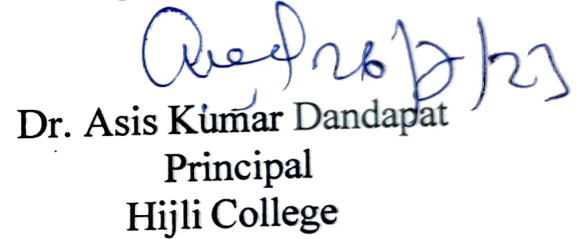 26/7/23
Dr. Asis Kumar Dandapat
Principal
Hijli College